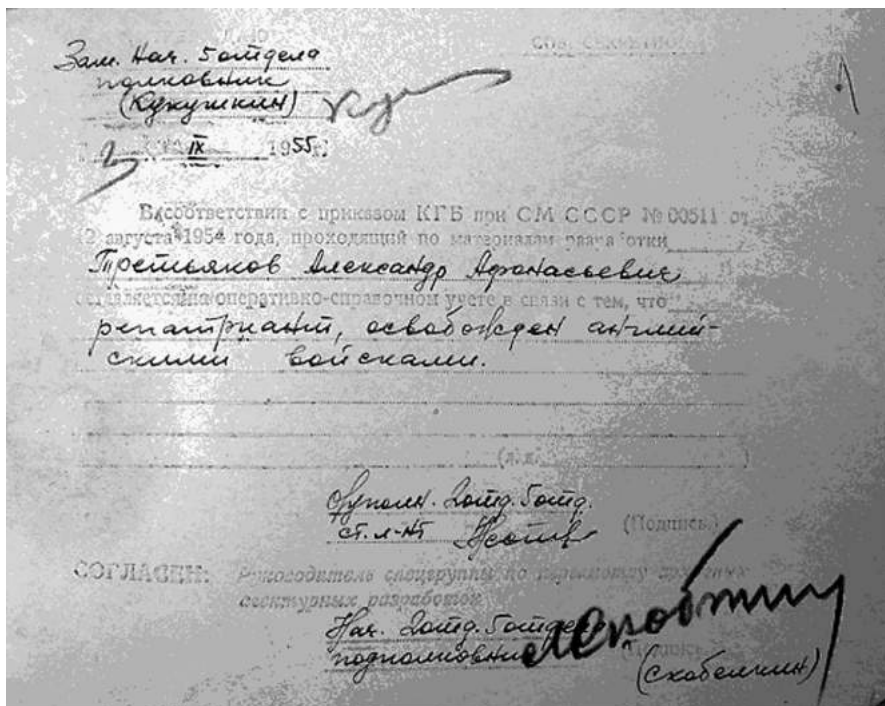 СОВ. СЕКРЕТНО
Зам. Нач. 5 отдела
полковник
(Кукушкин)
3 IX 1955 г.
В соответствии с приказом КГБ при СМ СССР № 00511 от
12 августа 1954 года, проходящий по материалам разработки
Третьяков Александр Афанасьевич
оставляется на оперативно-справочном учете в связи с тем, что
репатриант, освобожден англий-
скими войсками.
(л.д. )
2 отд. 5 отд.
ст. л-нт (Подпись)
СОГЛАСЕН: Руководитель спецгруппы по пересмотру архивных
агентурных разработок
Нач. 2 отд. 5 отдела
подполковник (Подпись)
(Скобелкин)